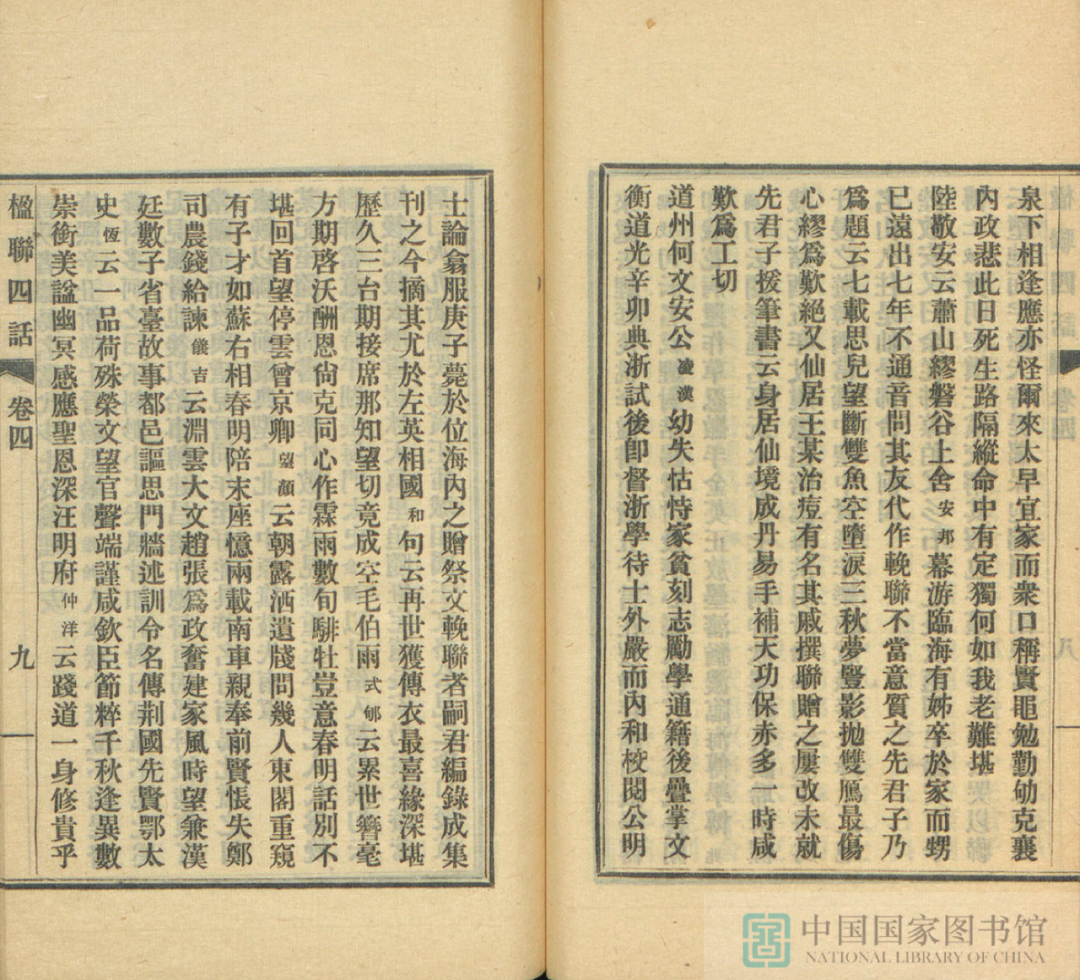 泉下相逢應亦怪爾來太早宜家而衆口稱賢黽勉勤劬克襄
內政悲此日死生路隔縱命中有定獨何如我老難堪
陸敬安云蕭山繆磐谷上舍安邦幕游臨海有姊卒於家而甥
已遠出七年不通音問其友代作輓聯不當意質之先君子乃
爲題云七載思兒望斷雙魚空墮淚三秋夢豎影拋雙鴈最傷
心繆爲歎絕又仙居王某治痘有名其戚撰聯贈之屢改未就
先君子援筆書云身居仙境成丹易手補天功保赤多一時咸
歎爲工切
道州何文安公凌漢幼失怙恃家貧刻志勵學通籍後疊掌文
衡道光辛卯典浙試後卽督浙學待士外嚴而內和校閱公明
士論翕服庚子薨於位海內之贈祭文輓聯者嗣君編錄成集
刊之今摘其尤於左英相國和句云再世獲傳衣最喜緣深堪
歷久三台期接席那知望切竟成空毛伯雨式郇云累世簪毫
方期啓沃酬恩尙克同心作霖雨數旬騑牡豈意春明話別不
堪回首望停雲曾京卿望顏云朝露洒遺牋問幾人東閣重窺
有子才如蘇右相春明陪末座憶兩載南車親奉前賢悵失鄭
司農錢給諫儀吉云淵雲大文趙張爲政奮建家風時望兼漢
廷數子省臺故事都邑謳思門牆述訓令名傳荆國先賢鄂太
史恆云一品荷殊榮文望官聲端謹咸欽臣節粹千秋逢異數
崇銜美諡幽冥感應聖恩深汪明府仲洋云踐道一身修貴乎
楹聯四話 卷四 九
中国国家图书馆
NATIONAL LIBRARY OF CHINA